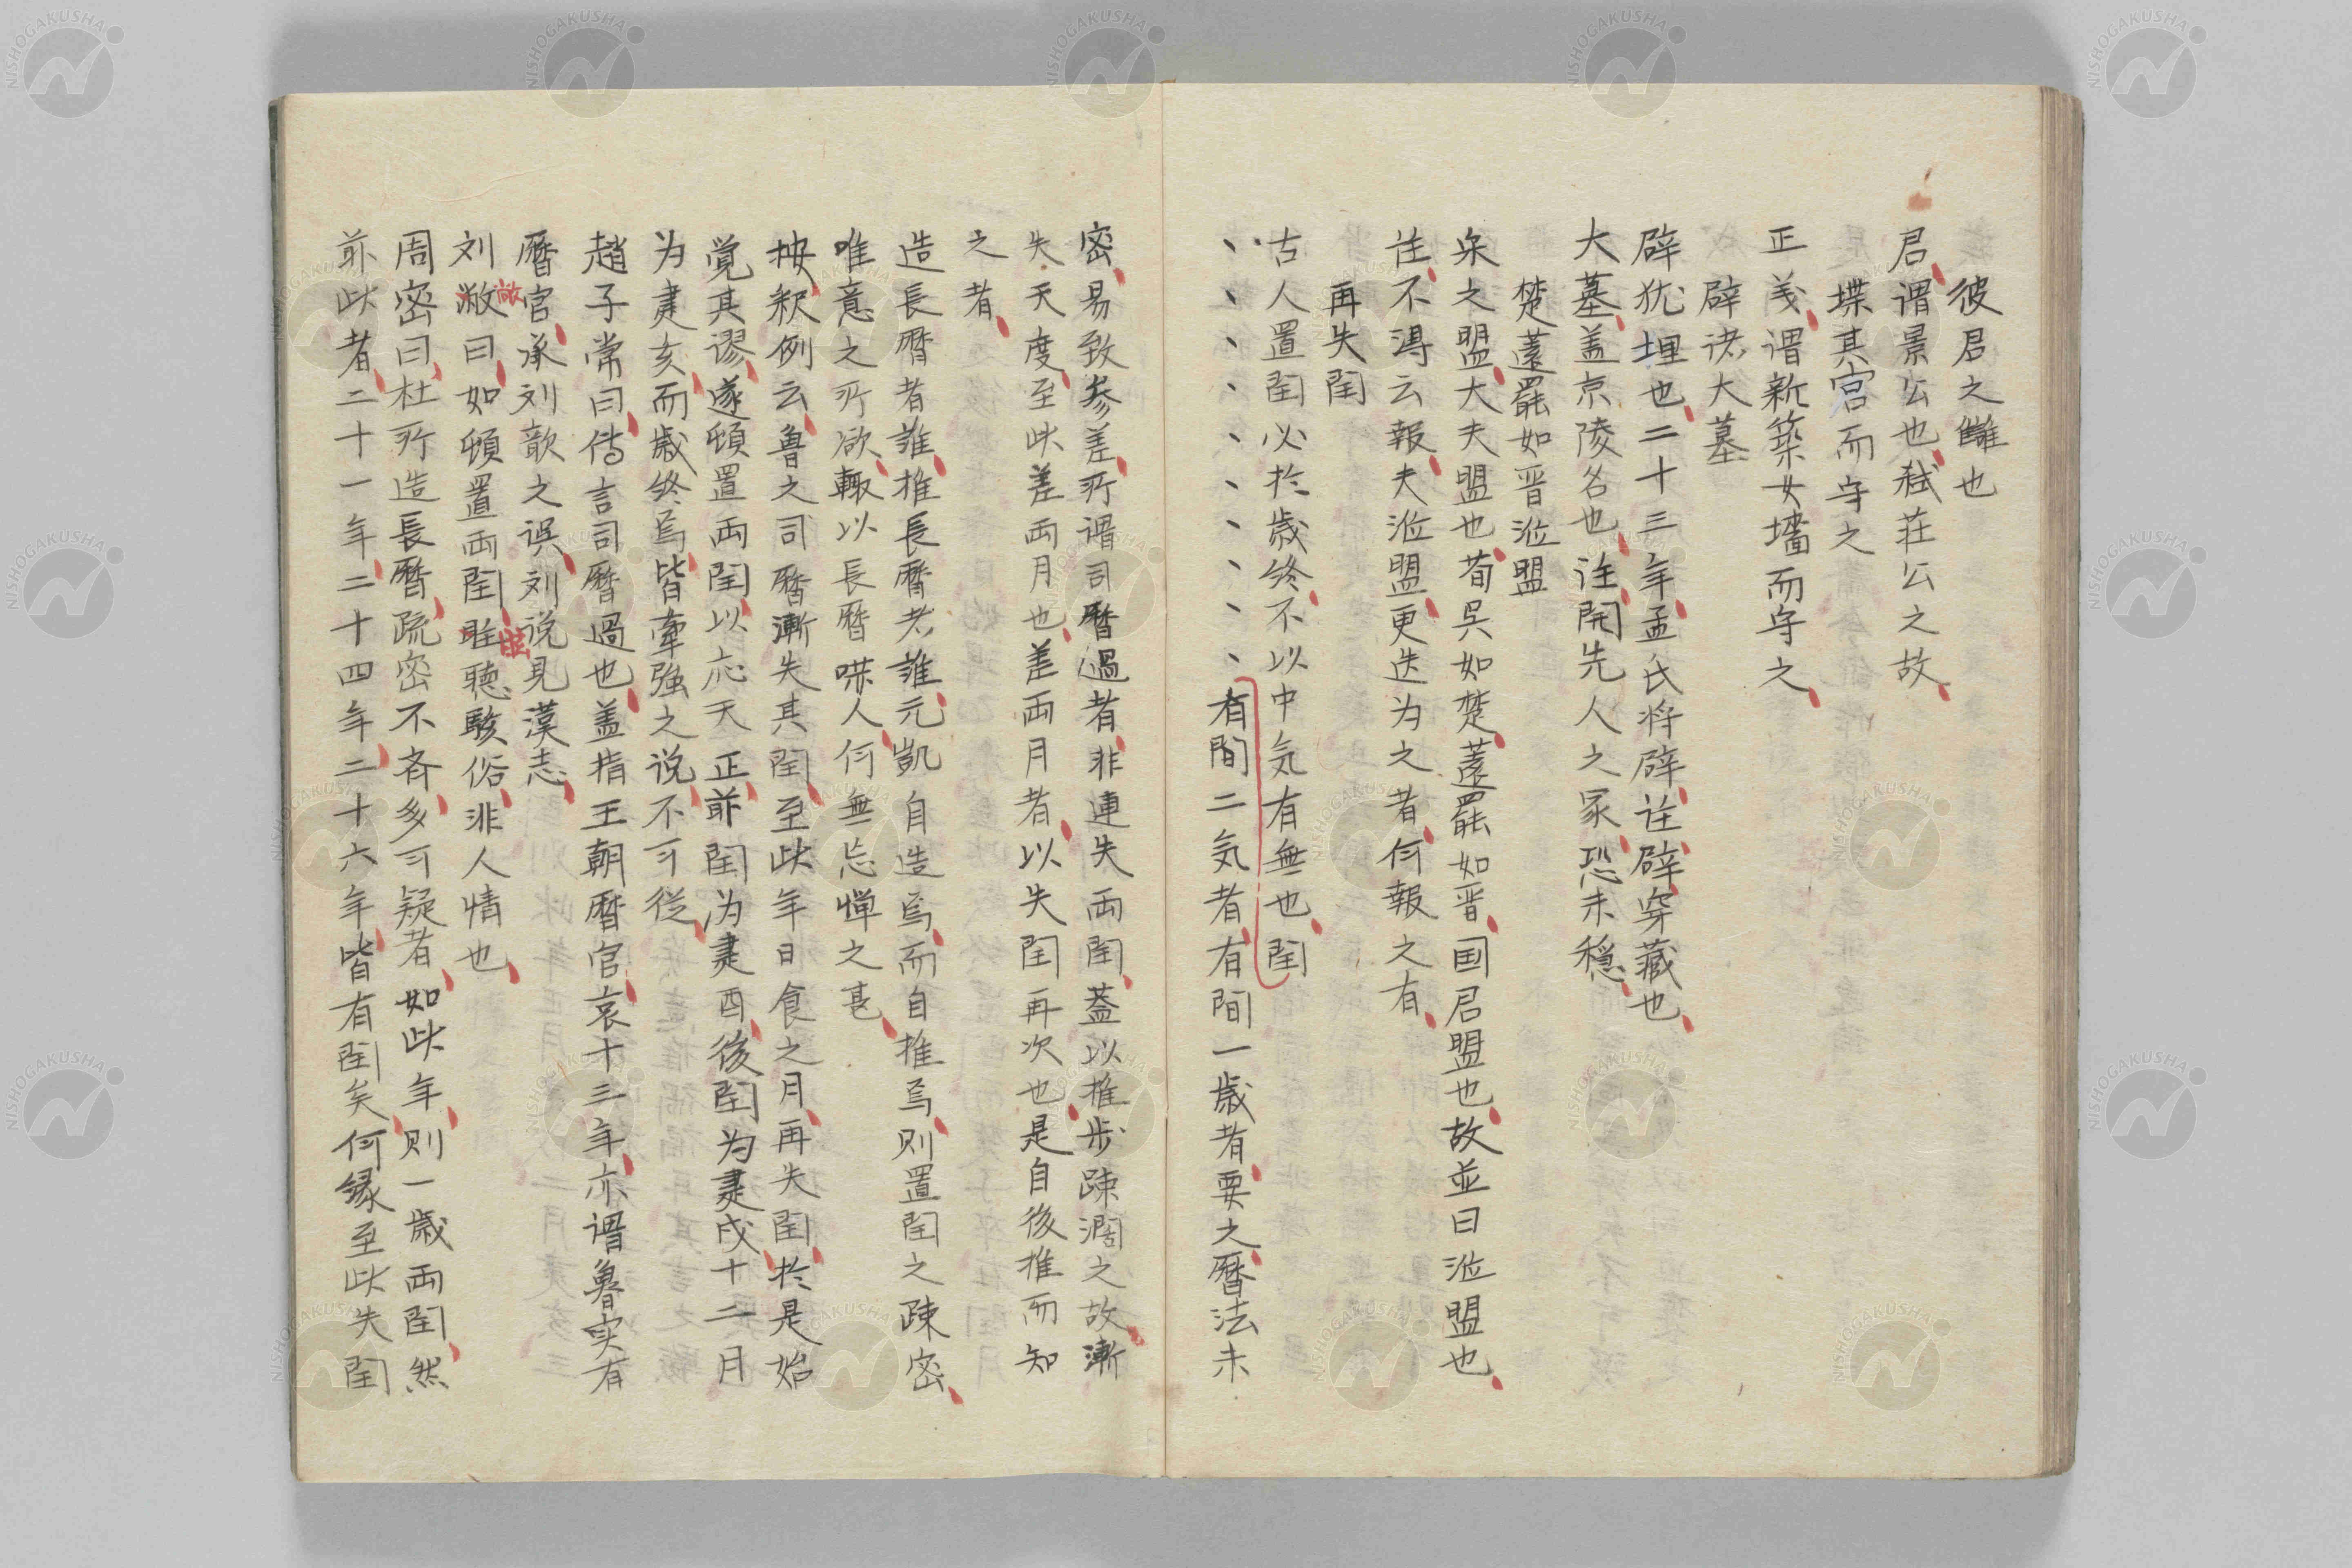 彼君之讎也
君謂景公也、弑荘公之故、
堞其宮而守之
正義、謂新築女墻而守之、
辟諸大墓
辟犹埋也、二十三年、孟氏将辟、注、辟穿藏也、
大墓、盖京陵名也、注、開先人之冢、恐未穏、
楚薳罷如晋涖盟
宋之盟、大夫盟也、荀呉如楚、薳罷如晋、国君盟也、故並曰涖盟也、
注、不淂云報、夫涖盟、更迭为之者、何報之有、
再失閏
古人置閏必於歳終、不以中気有無也、閏
、、、、、、、、、、有間二気者、有間一歳者、要之、曆法未
密、易致参差、所谓司曆過者、非連失両閏、蓋以推步踈濶之故、漸
失天度、至此差両月也、差両月者、以失閏再次也、是自後推而知
之者、
造長曆者誰、推長曆者誰、元凱自造焉、而自推焉、则置閏之踈密、
唯意之所欲、輙以長曆喋人、何無忌憚之甚、
按、釈例云、魯之司曆漸失其閏、至此年日食之月、再失閏、於是始
覚其謬、遂頓置両閏、以応天正、前閏为建酉、後閏为建戌、十二月
为建亥、而歳終焉、皆牽強之说、不可従、
趙子常曰、传言司曆過也、盖指王朝曆官、哀十三年、亦谓魯実有
曆官、承刘歆之误、刘说見漢志、
刘敞敞曰、如頓置両閏、駐駭聴駭俗、非人情也、
周密曰、杜所造長曆、疏密不斉、多可疑者、如此年、则一歳両閏、然
前此者、二十一年、二十四年、二十六年、皆有閏矣、何縁至此失閏